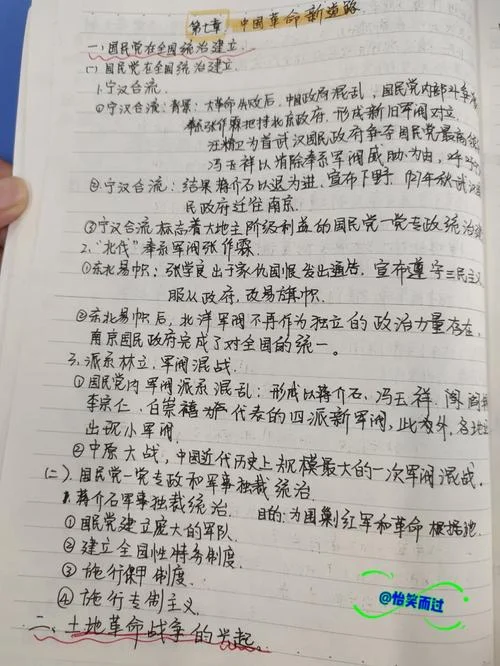 第七章 中国革命新道路
一、国民党在全国统治建立.
(一) 国民党在全国统治建立.
1.宁汉合流.
①宁汉合流:背景:大革命失败后,中国政府混乱,国民党内部斗争
奉系张作霖把持北京政府,形成新旧军阀对立.
汪精卫为首武汉国民政府争夺国民党最高
冯玉祥以消除奉系军阀威胁为由,呼吁
②宁汉合流:结果蒋介石以退为进,宣布下野 17年秋武汉
民政府迁往南京.
③宁汉合流标志着大地主阶级利益的国民党一党专政统治
2."北伐"奉系军阀张作霖.
①东北易帜:张学良出于家仇国恨发出通告,宣布遵守三民主义
服从政府,改易旗帜.
②东北易帜后,北洋军阀不再作为独立的政治力量存在,
南京国民政府完成了对全国的统一。
3.派系林立,军阀混战.
①国民党内军阀派系混乱:形成以蒋介石,冯玉祥 阎
李宗仁,白崇禧为代表的四派新军阀,此外,各地
出现小军阀.
②中原大战,中国近代历史上规模最大的一次军阀混战.
(二).国民党一党专政和军事独裁统治
1.蒋介石军事独裁统治. 目的:为围剿红军和革命根据地.
①国民党建立庞大的军队.
②建立全国性特务制度.
③施行保甲制度.
④施行专制主义.
二、土地革命战争的兴起.
@怡笑而过